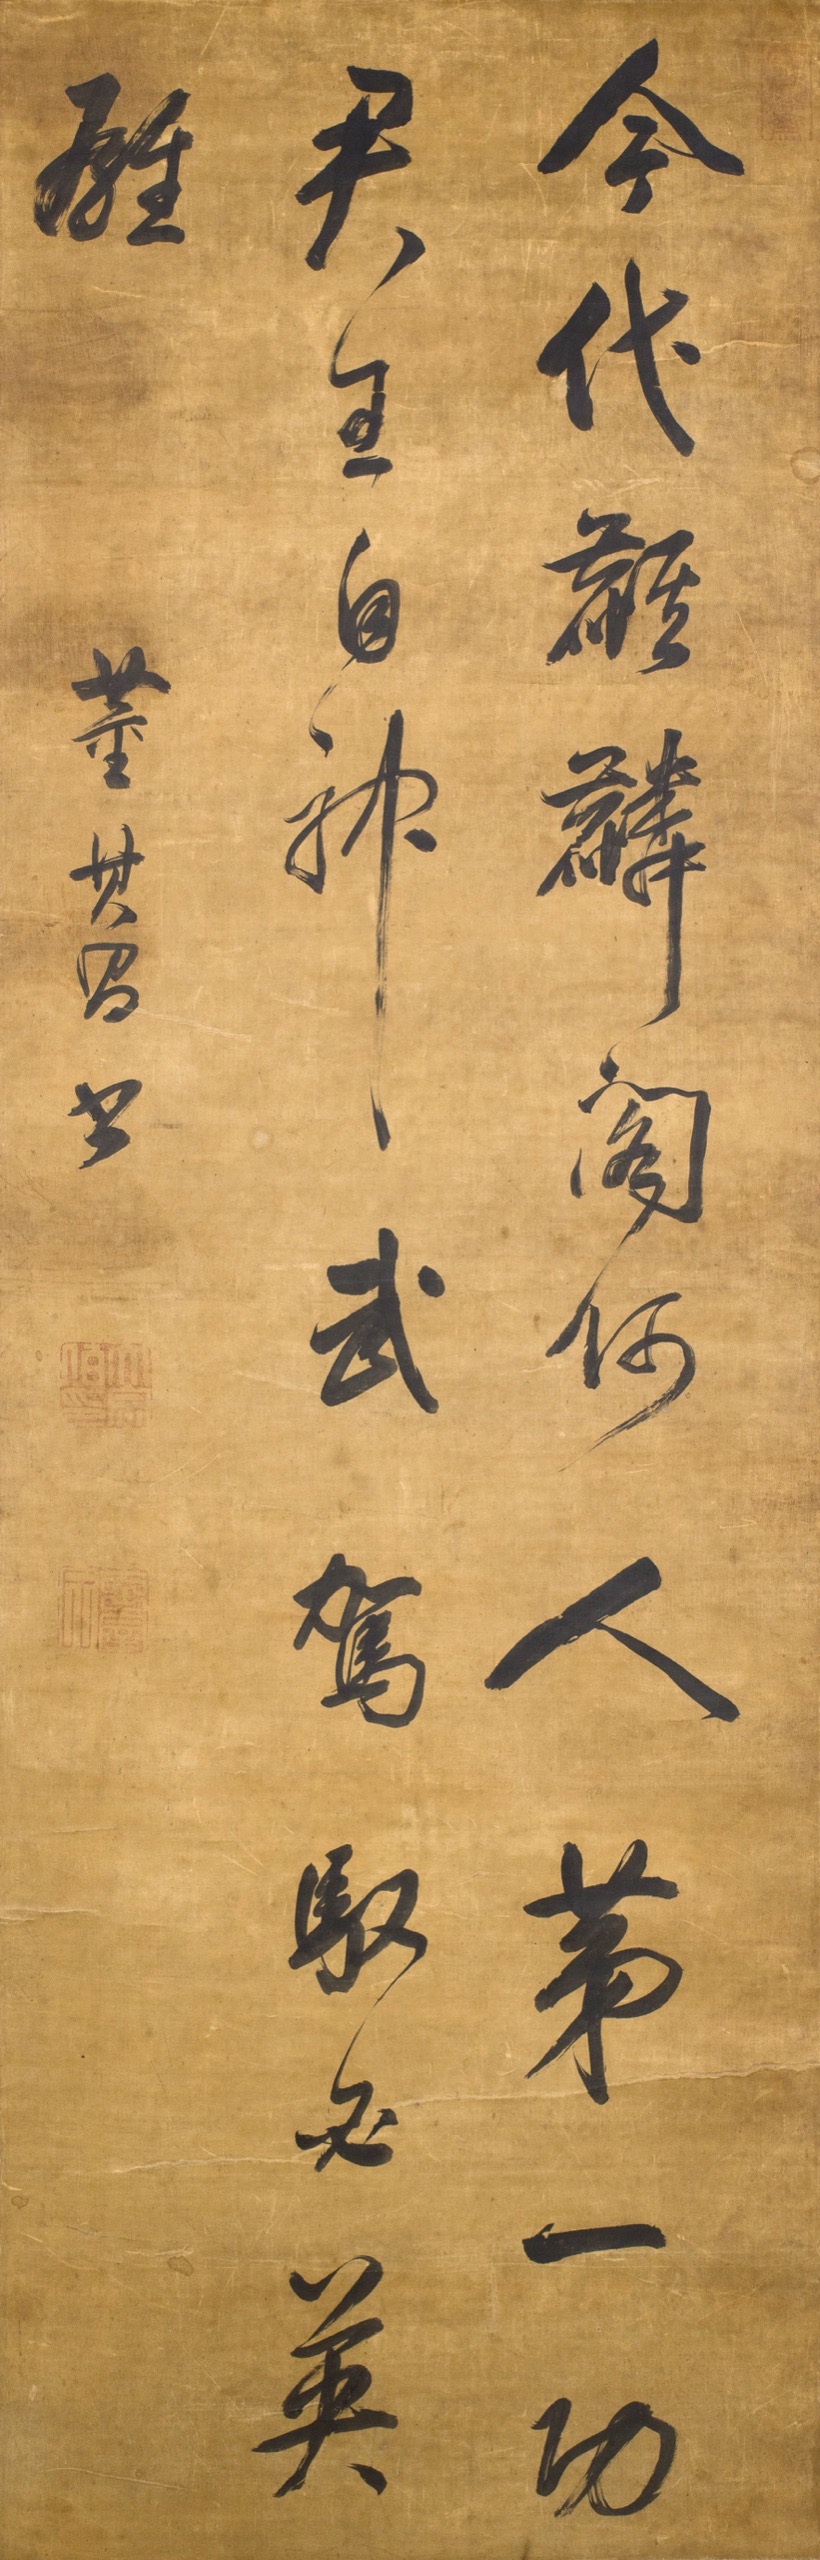 今代麒麟閣何人第一功
君王自神武駕馭必英
雄
董其昌書